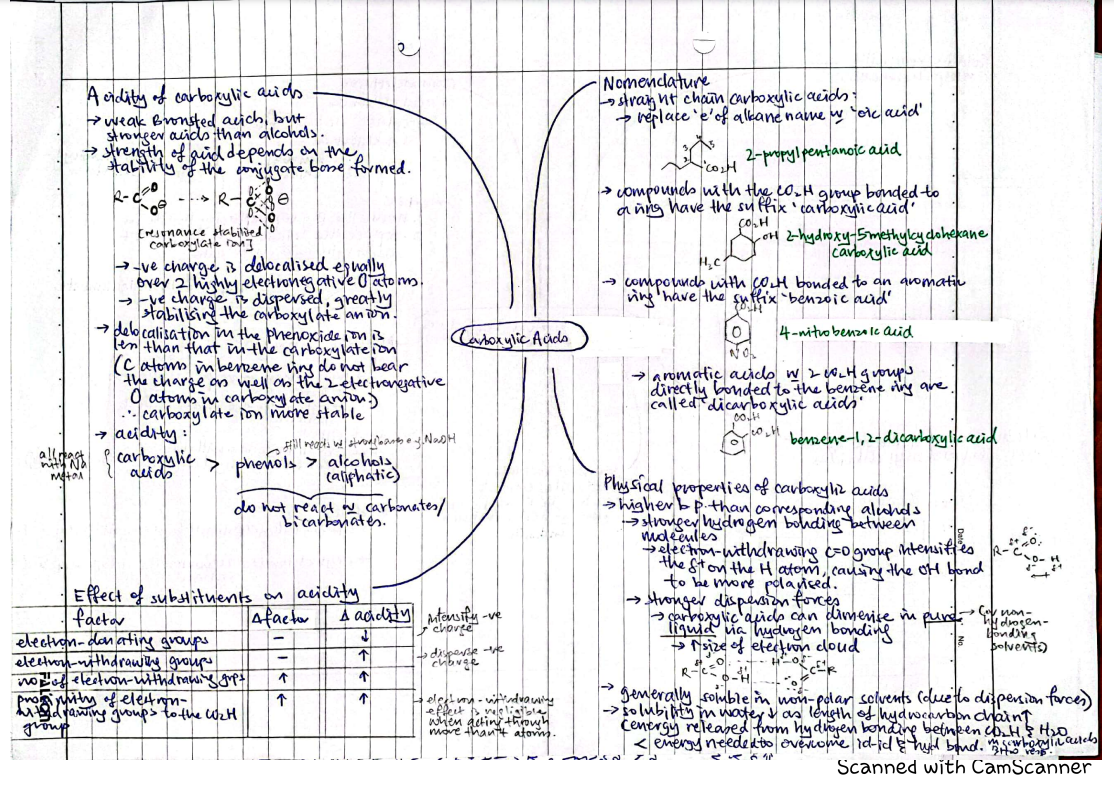 Acidity of carboxylic acids
→ weak Bronsted acids, but
stronger acids than alcohols.
→ strength of acid depends on the
stability of the conjugate base formed.
R-C O O⊖ ----→ R-C O O ⊖
[resonance stabilised
carboxylate ion]
→ -ve charge is delocalised equally
over 2 highly electronegative O atoms.
→ -ve charge is dispersed, greatly
stabilising the carboxylate anion.
→ delocalisation in the phenoxide ion is
less than that in the carboxylate ion
(C atoms in benzene ring do not bear
the charge as well as the 2 electronegative
O atoms in carboxylate anion)
∴ carboxylate ion more stable
→ acidity:
still reacts w strong bases e.g. NaOH
all react
with Na
metal
carboxylic
acids > phenols > alcohols
(aliphatic)
do not react w carbonates/
bicarbonates.
Effect of substituents on acidity
factor Δfactor Δ acidity
electron-donating groups – ↓
intensify -ve
charge
electron-withdrawing groups – ↑
→ disperse -ve
charge
no. of electron-withdrawing grps ↑ ↑
proximity of electron-
withdrawing groups to the CO2H
group ↑ ↑
→ electron-withdrawing
effect is negligible
when acting through
more than 4 atoms.
FALCON
Carboxylic Acids
Nomenclature
→ straight chain carboxylic acids:
→ replace 'e' of alkane name w 'oic acid'
1 2 3 4 5
CO2H
2-propylpentanoic acid
→ compounds with the CO2H group bonded to
a ring have the suffix 'carboxylic acid'
CO2H
OH
H3C
2-hydroxy-5methylcyclohexane
carboxylic acid
→ compounds with CO2H bonded to an aromatic
ring have the suffix 'benzoic acid'
CO2H
NO2
4-nitrobenzoic acid
→ aromatic acids w 2 CO2H groups
directly bonded to the benzene ring are
called 'dicarboxylic acids'
CO2H
CO2H
benzene-1,2-dicarboxylic acid
Physical properties of carboxylic acids
→ higher b.p. than corresponding alcohols
→ stronger hydrogen bonding between
molecules
→ electron-withdrawing C=O group intensifies
the δ+ on the H atom, causing the OH bond
to be more polarised.
R-C O O-H
Date
No
→ stronger dispersion forces
→ carboxylic acids can dimerise in pure
liquid via hydrogen bonding
→ (or non-
hydrogen-
bonding
solvents)
→ ↑ size of electron cloud
R-C O ---- H-O C-R
→ generally soluble in non-polar solvents (due to dispersion forces)
→ solubility in water ↓ as length of hydrocarbon chain ↑
(energy released from hydrogen bonding between CO2H & H2O
< energy needed to overcome id-id & hyd bond. in carboxylic acids
& H2O resp.
Scanned with CamScanner